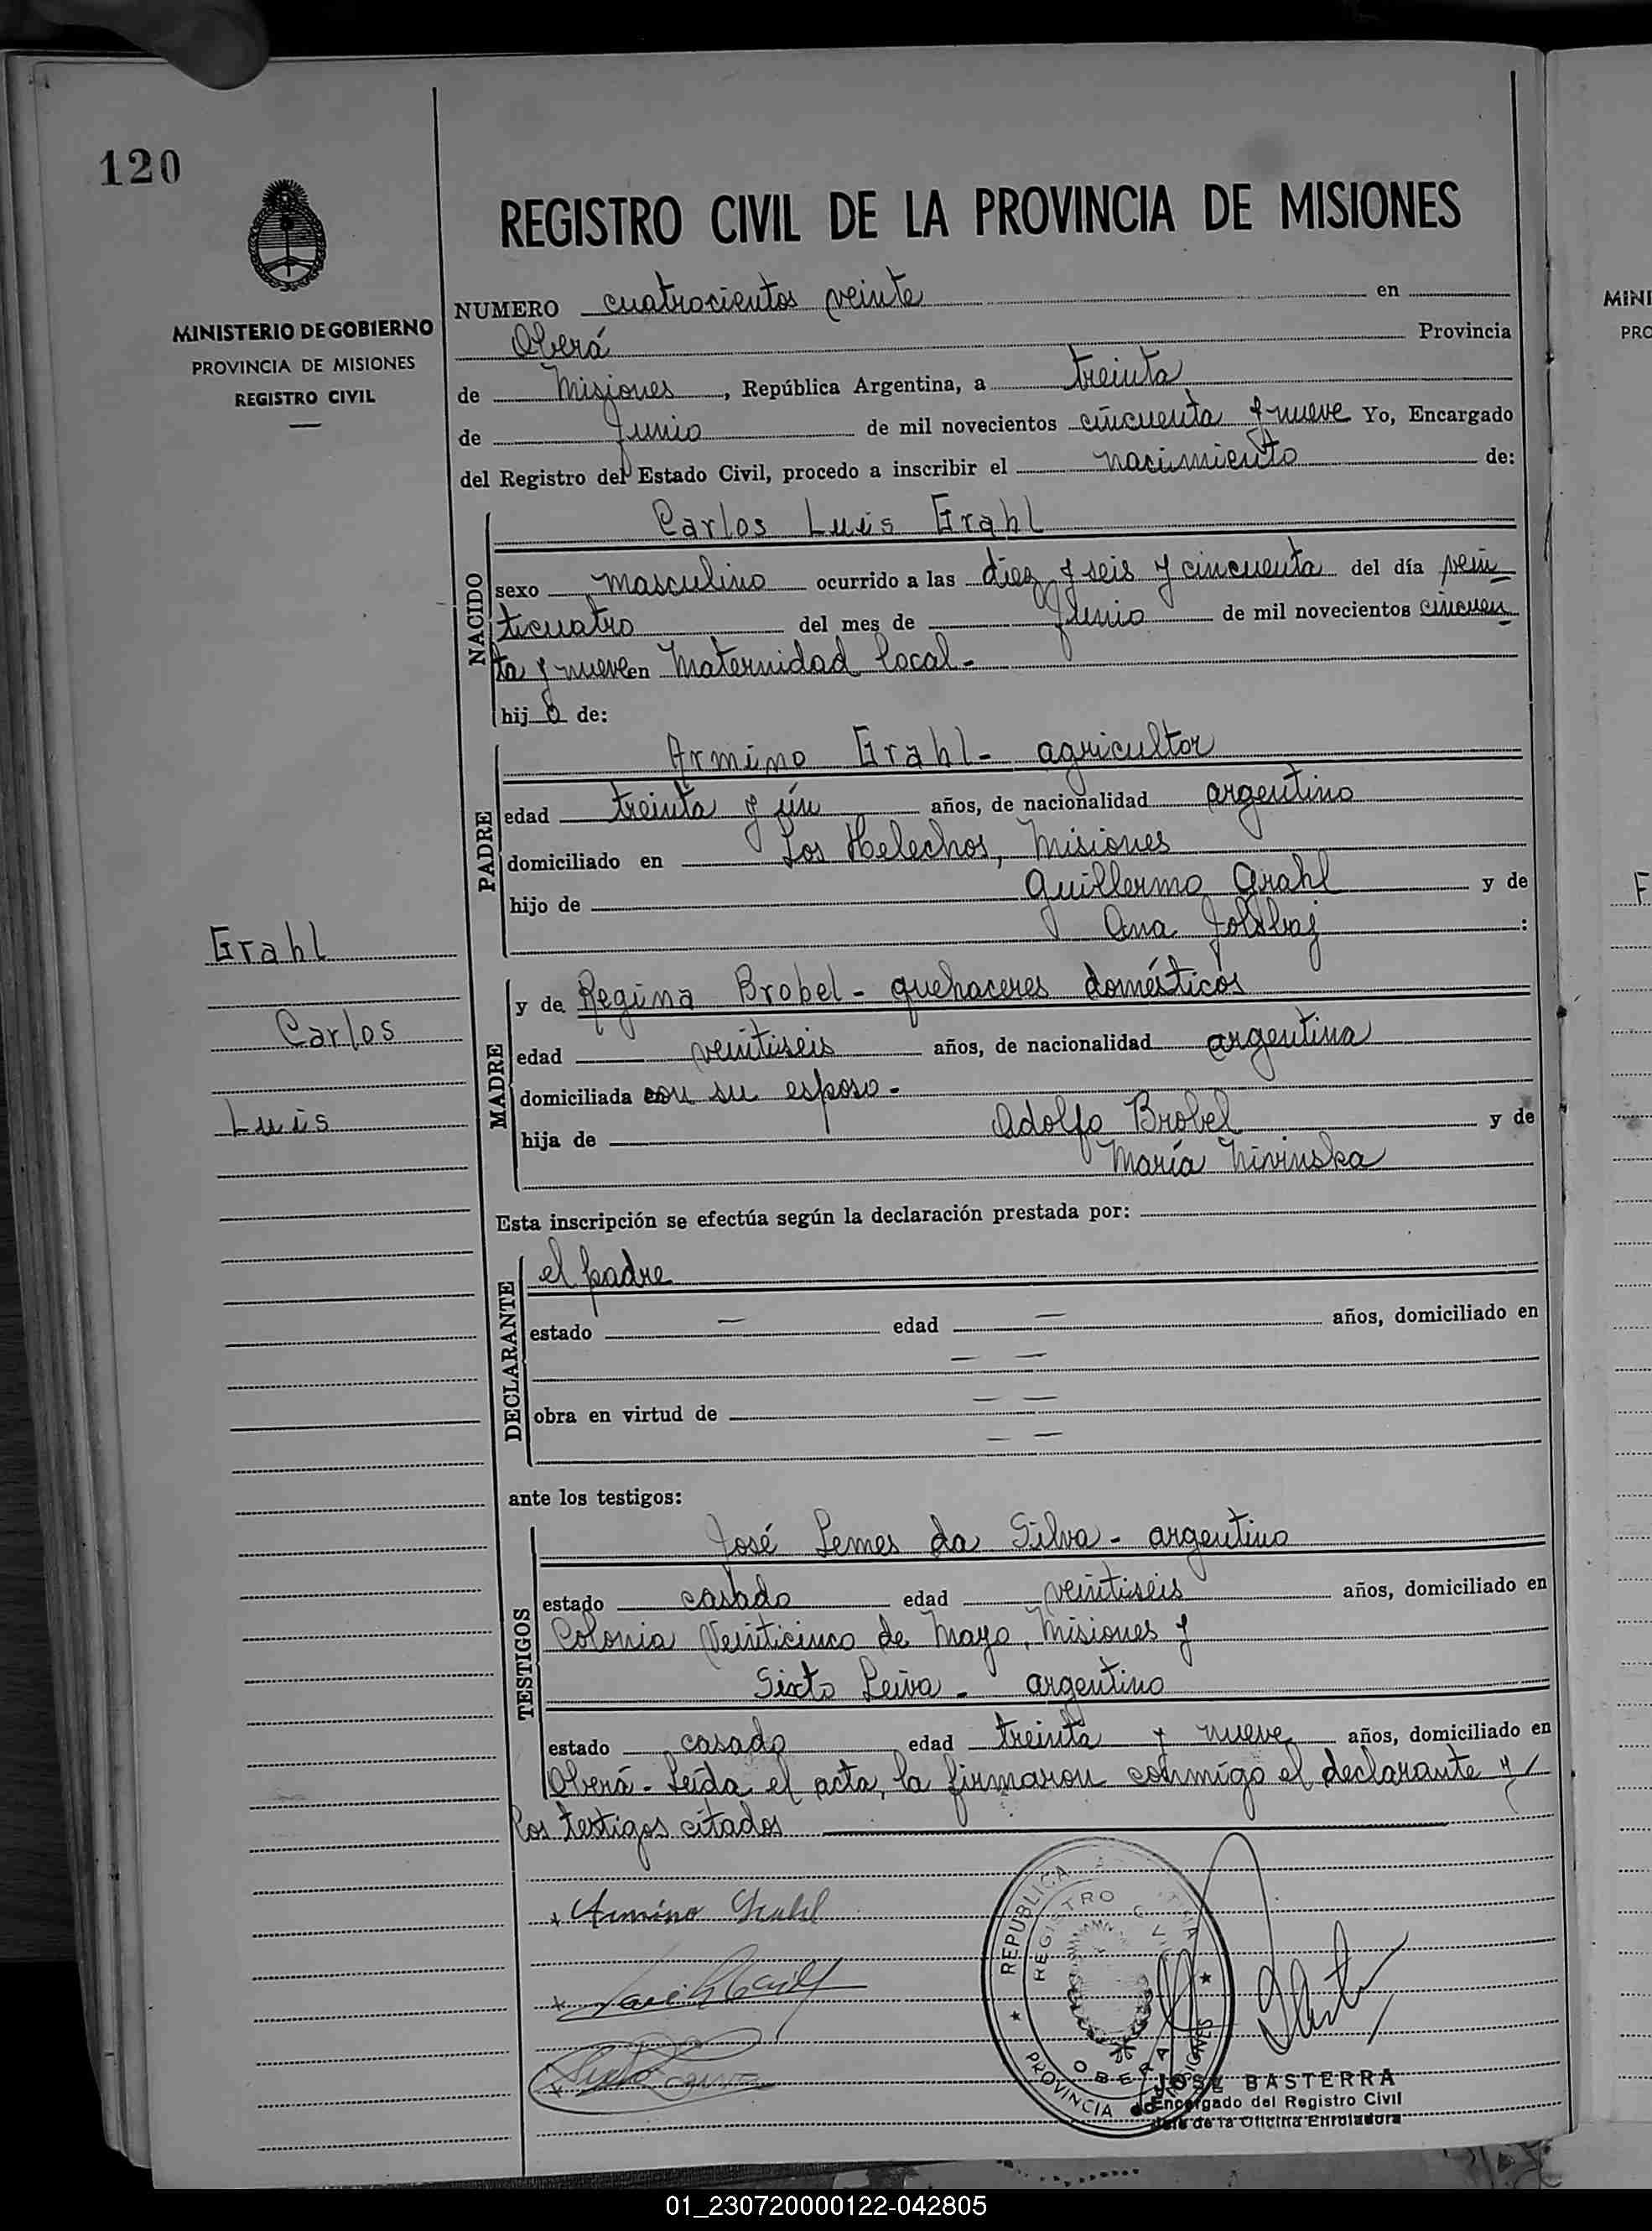 120
REGISTRO CIVIL DE LA PROVINCIA DE MISIONES
MINISTERIO DE GOBIERNO
PROVINCIA DE MISIONES
REGISTRO CIVIL
NUMERO cuatrocientos veinte en
Oberá Provincia
de Misiones, República Argentina, a treinta
de Junio de mil novecientos cincuenta y nueve Yo, Encargado
del Registro del Estado Civil, procedo a inscribir el nacimiento de:
NACIDO
Carlos Luis Grahl
sexo masculino ocurrido a las diez y seis y cincuenta del día vein
ticuatro del mes de Junio de mil novecientos cincuen
ta y nueve en Maternidad local.-
hijo de:
PADRE
Armino Grahl - agricultor
edad treinta y un años, de nacionalidad argentino
domiciliado en Los Helechos, Misiones
hijo de Guillermo Grahl y de
Ana :
Grahl
Carlos
Luis
MADRE
y de Regina Brobel - quehaceres domésticos
edad veintiseis años, de nacionalidad argentina
domiciliada con su esposo -
hija de Adolfo Brobel y de
María
Esta inscripción se efectúa según la declaración prestada por:
DECLARANTE
el padre
estado — edad — años, domiciliado en
— —
obra en virtud de — —
— —
ante los testigos:
TESTIGOS
José Lemes da Silva - argentino
estado casado edad veintiseis años, domiciliado en
Colonia Veinticinco de Mayo, Misiones y
Sixto Leiva - argentino
estado casado edad treinta y nueve años, domiciliado en
Oberá - Leída el acta, la firmaron conmigo el declarante y
los testigos citados
Armino Grahl
REPUBLICA
REGISTRO CIVIL
OBERA
PROVINCIA DE MISIONES
JOSE BASTERRA
Encargado del Registro Civil
Jefe de la Oficina Enroladora
MINI
PRO
F
01_230720000122-042805